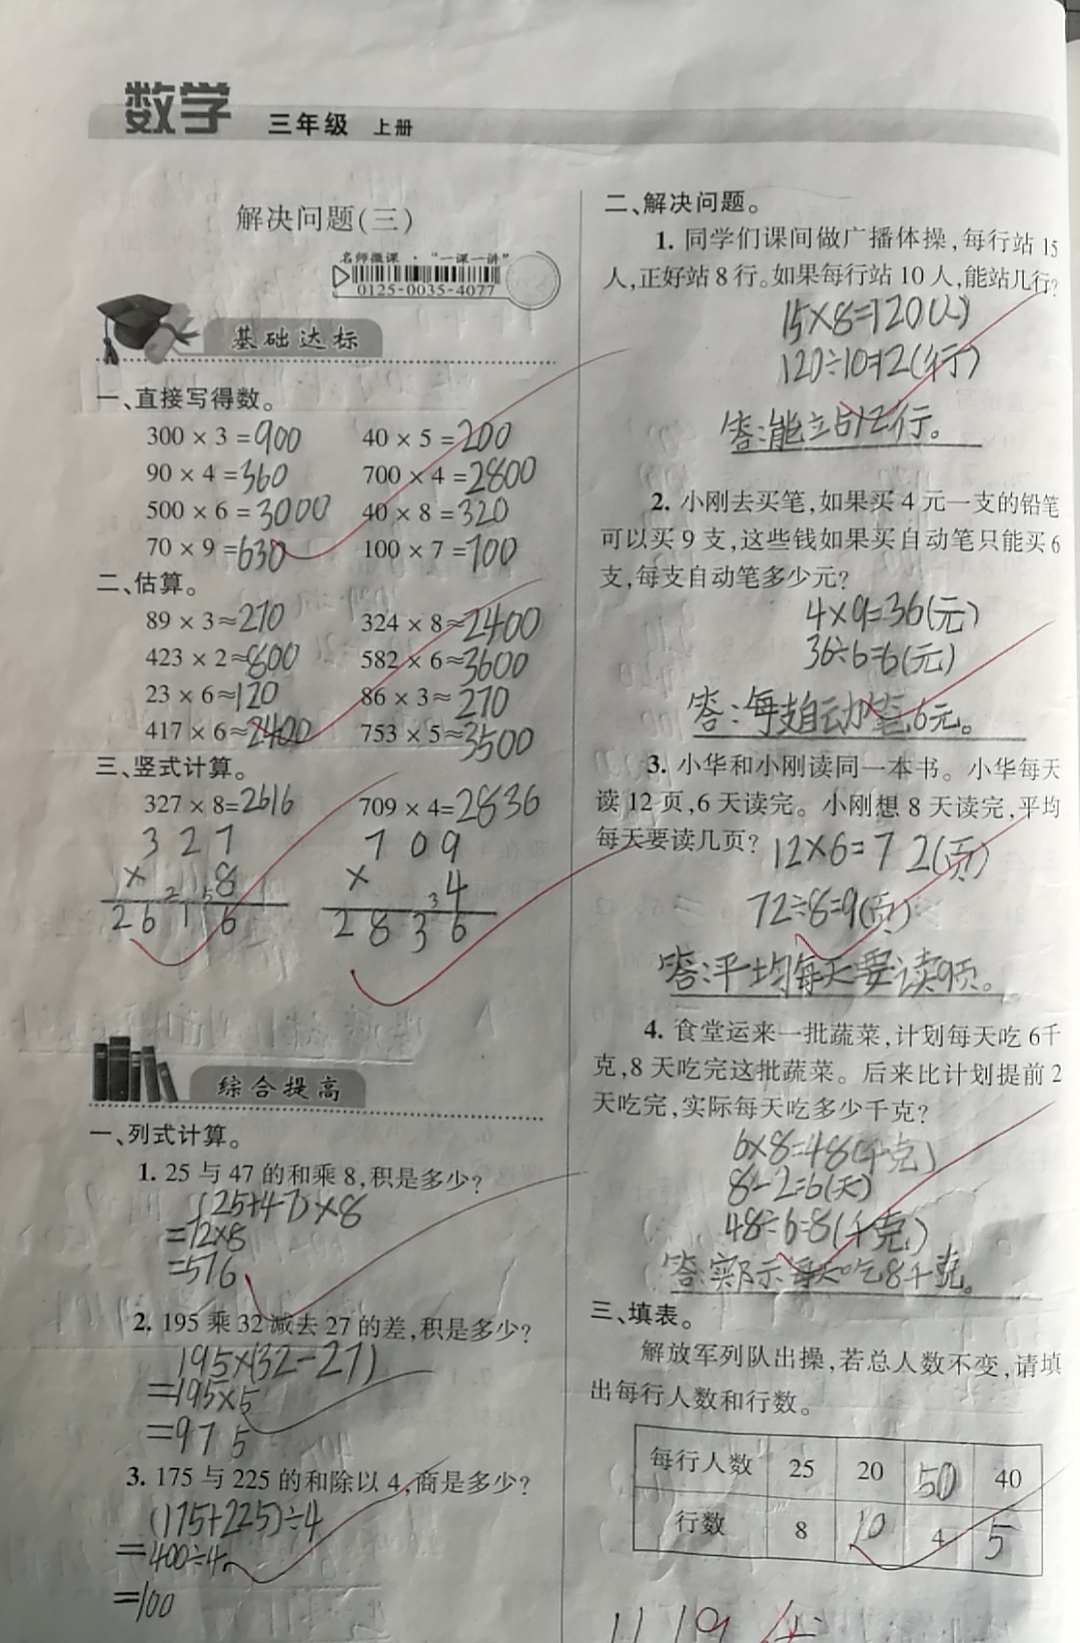 数学 三年级 上册
解决问题(三)
名师微课·“一课一讲”
0125-0035-4077
基础达标
一、直接写得数。
300 × 3 =900 40 × 5 =200
90 × 4 =360 700 × 4 =2800
500 × 6 =3000 40 × 8 =320
70 × 9 =630 100 × 7 =700
二、估算。
89 × 3≈270 324 × 8≈2400
423 × 2≈800 582 × 6≈3600
23 × 6≈120 86 × 3≈270
417 × 6≈2400 753 × 5≈3500
三、竖式计算。
327 × 8=2616 709 × 4=2836
3 2 7 7 0 9
× 2 5 8 × 3 4
2 6 1 6 2 8 3 6
综合提高
一、列式计算。
1. 25 与 47 的和乘 8,积是多少?
(25+47)×8
=72×8
=576
2. 195 乘 32 减去 27 的差,积是多少?
195×(32-27)
=195×5
=975
3. 175 与 225 的和除以 4,商是多少?
(175+225)÷4
=400÷4
=100
二、解决问题。
1. 同学们课间做广播体操,每行站 15
人,正好站 8 行。如果每行站 10 人,能站几行?
15×8=120(人)
120÷10=12(行)
答:能站12行。
2. 小刚去买笔,如果买 4 元一支的铅笔
可以买 9 支,这些钱如果买自动笔只能买 6
支,每支自动笔多少元?
4×9=36(元)
36÷6=6(元)
答:每支自动笔6元。
3. 小华和小刚读同一本书。小华每天
读 12 页,6 天读完。小刚想 8 天读完,平均
每天要读几页?
12×6=72(页)
72÷8=9(页)
答:平均每天要读9页。
4. 食堂运来一批蔬菜,计划每天吃 6千
克,8 天吃完这批蔬菜。后来比计划提前 2
天吃完,实际每天吃多少千克?
6×8=48(千克)
8-2=6(天)
48÷6=8(千克)
答:实际每天吃8千克。
三、填表。
解放军列队出操,若总人数不变,请填
出每行人数和行数。
每行人数 25 20 50 40
行数 8 10 4 5